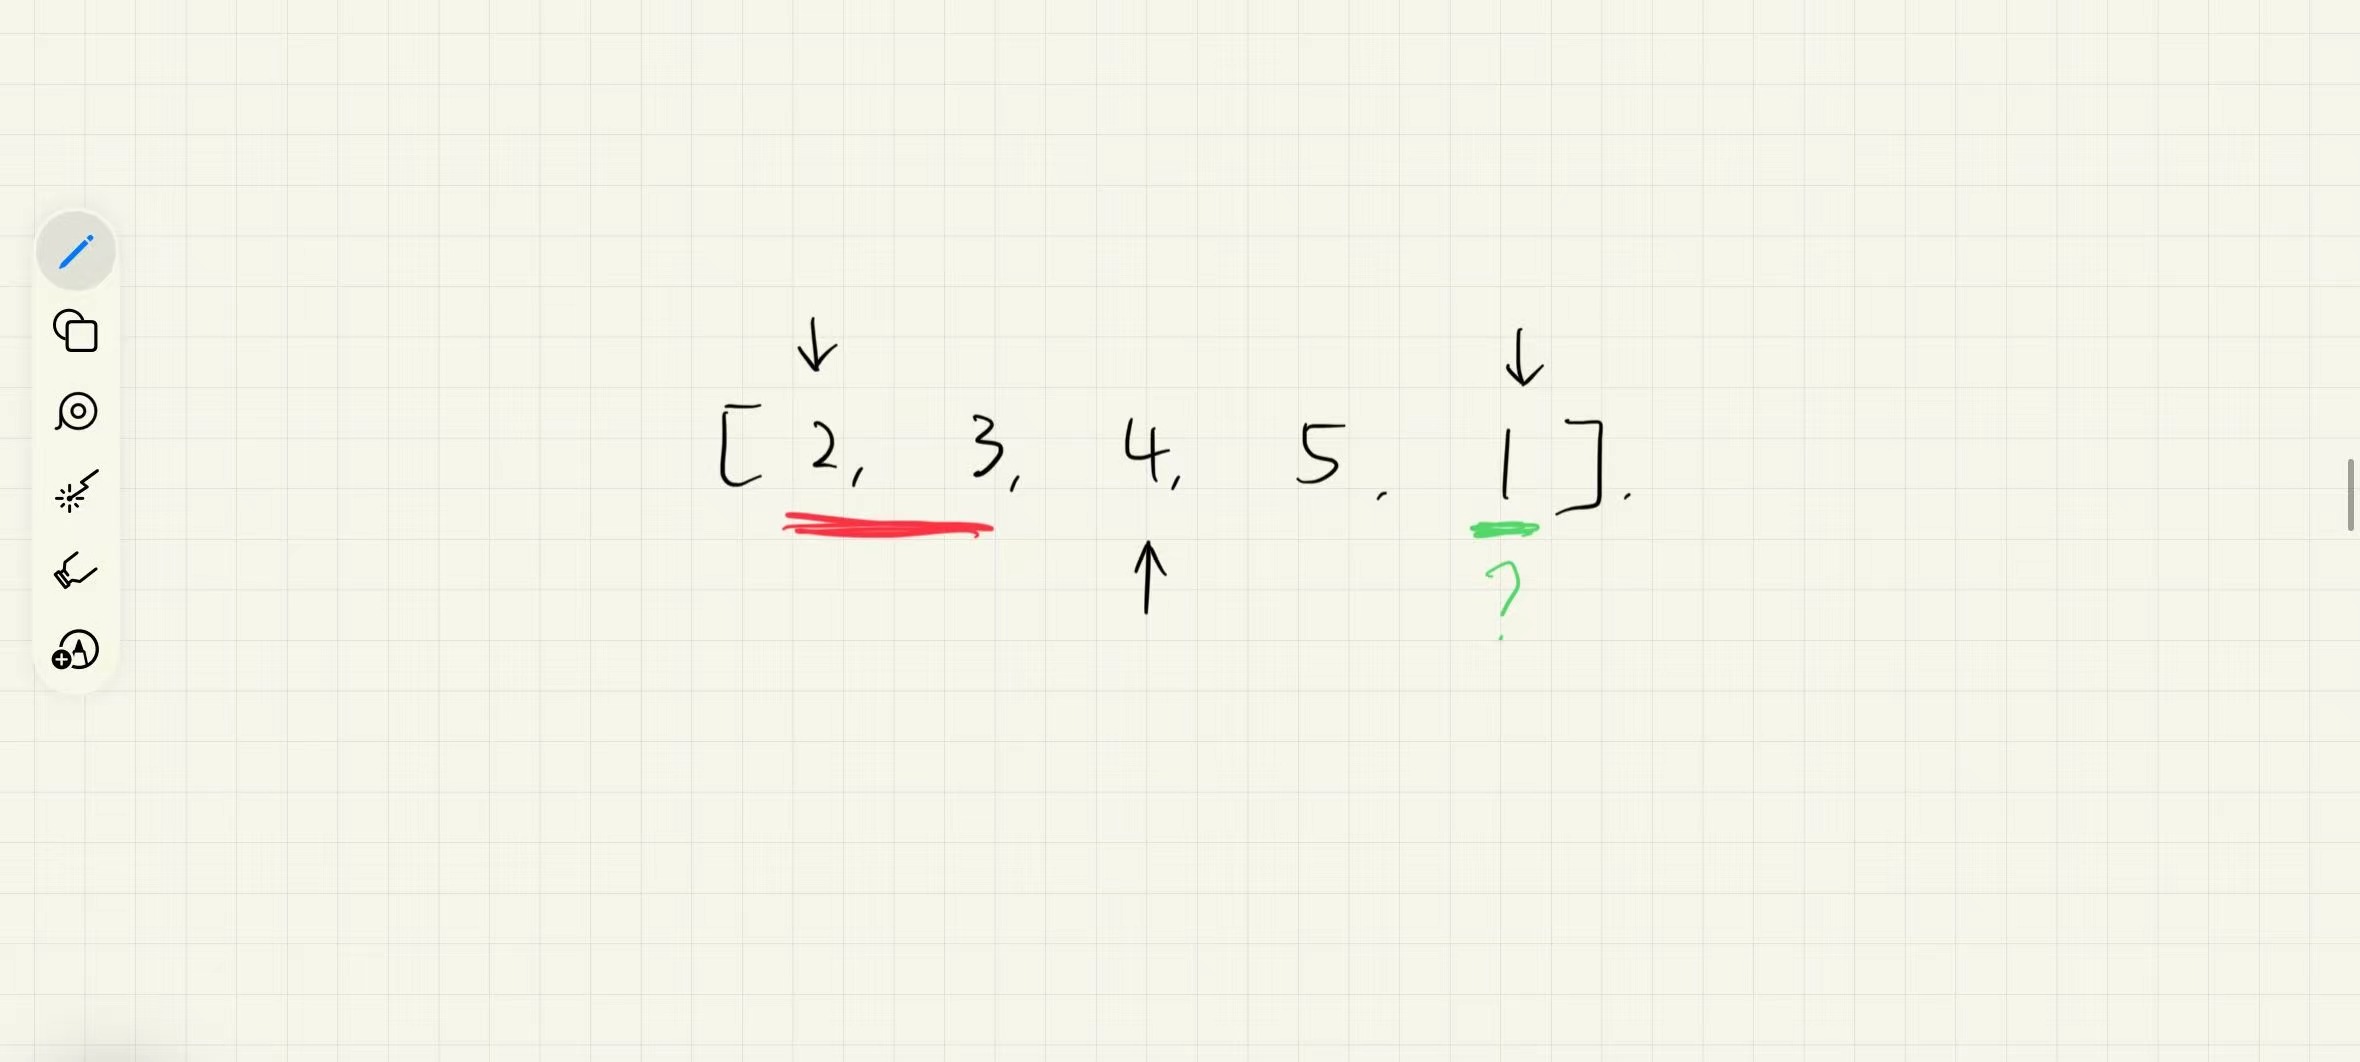 [ 2, 3, 4, 5, 1 ].
?